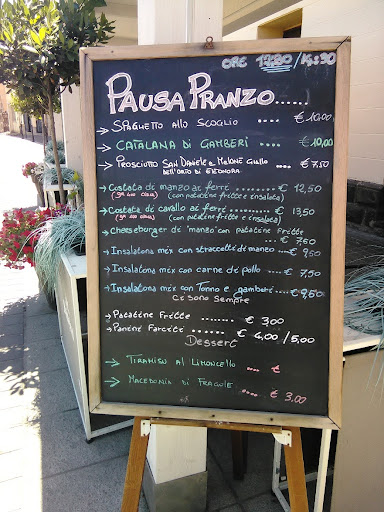 ORE 12:30 / 14:30
PAUSA PRANZO......
→ SPAGHETTO ALLO SCOGLIO ..... € 10,00
→ CATALANA DI GAMBERI ..... € 10,00
→ PROSCIUTTO SAN DANIELE e MELONE GIALLO .... € 7,50
DELL'ORTO DI ELEONORA
→ Costata di manzo ai ferri ........ € 12,50
(con patatine fritte e insalata)
→ Costata di cavallo ai ferri ...... € 13,50
(con patatine fritte e insalata)
→ cheeseburger di "manzo" con patatine fritte
..... € 7,50
→ Insalatona mix con straccetti di manzo ... € 9,50
→ Insalatona mix con carne di pollo .... € 7,50
→ Insalatona mix con Tonno e gamberi ... € 9,50
Ci sono sempre
→ Patatine Fritte ........ € 3,00
→ Panini Farciti ...... € 4,00 / 5,00
Dessert
→ TIRAMISU AL LIMONCELLO ....
→ MACEDONIA DI FRAGOLE .... € 3,00